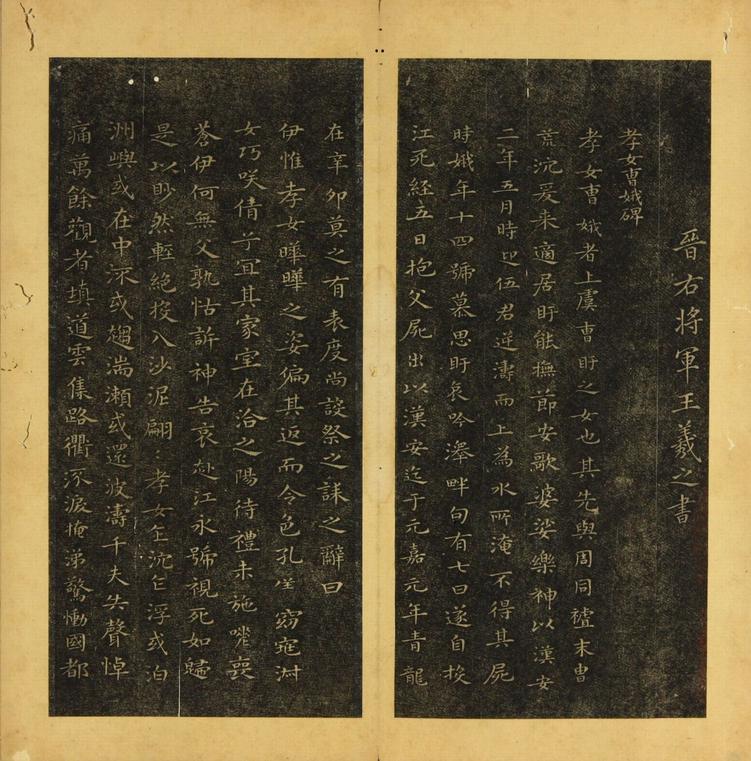 晉右將軍王羲之書
孝女曹娥碑
孝女曹娥者上虞曹盱之女也其先與周同祖末冑
荒沉爰来適居盱能撫節安歌婆娑樂神以漢安
二年五月時迎伍君逆濤而上為水所淹不得其屍
時娥年十四號慕思盱哀吟澤畔旬有七日遂自投
江死經五日抱父屍出以漢安迄于元嘉元年青龍
在辛卯莫之有表度尚設祭之誄之辭曰
伊惟孝女曄曄之姿偏其返而令色孔儀窈窕淑
女巧咲倩子宜其家室在洽之陽待禮未施嗟喪
蒼伊何無父孰怙訴神告哀赴江永號視死如歸
是以眇然輕絕投入沙泥翩=孝女乍沉乍浮或泊
洲嶼或在中流或趨湍瀬或還波濤千夫失聲悼
痛萬餘觀者填道雲集路衢流淚掩涕驚慟國都